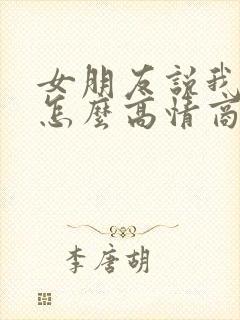 女朋友説我
怎麼高情商
李唐胡